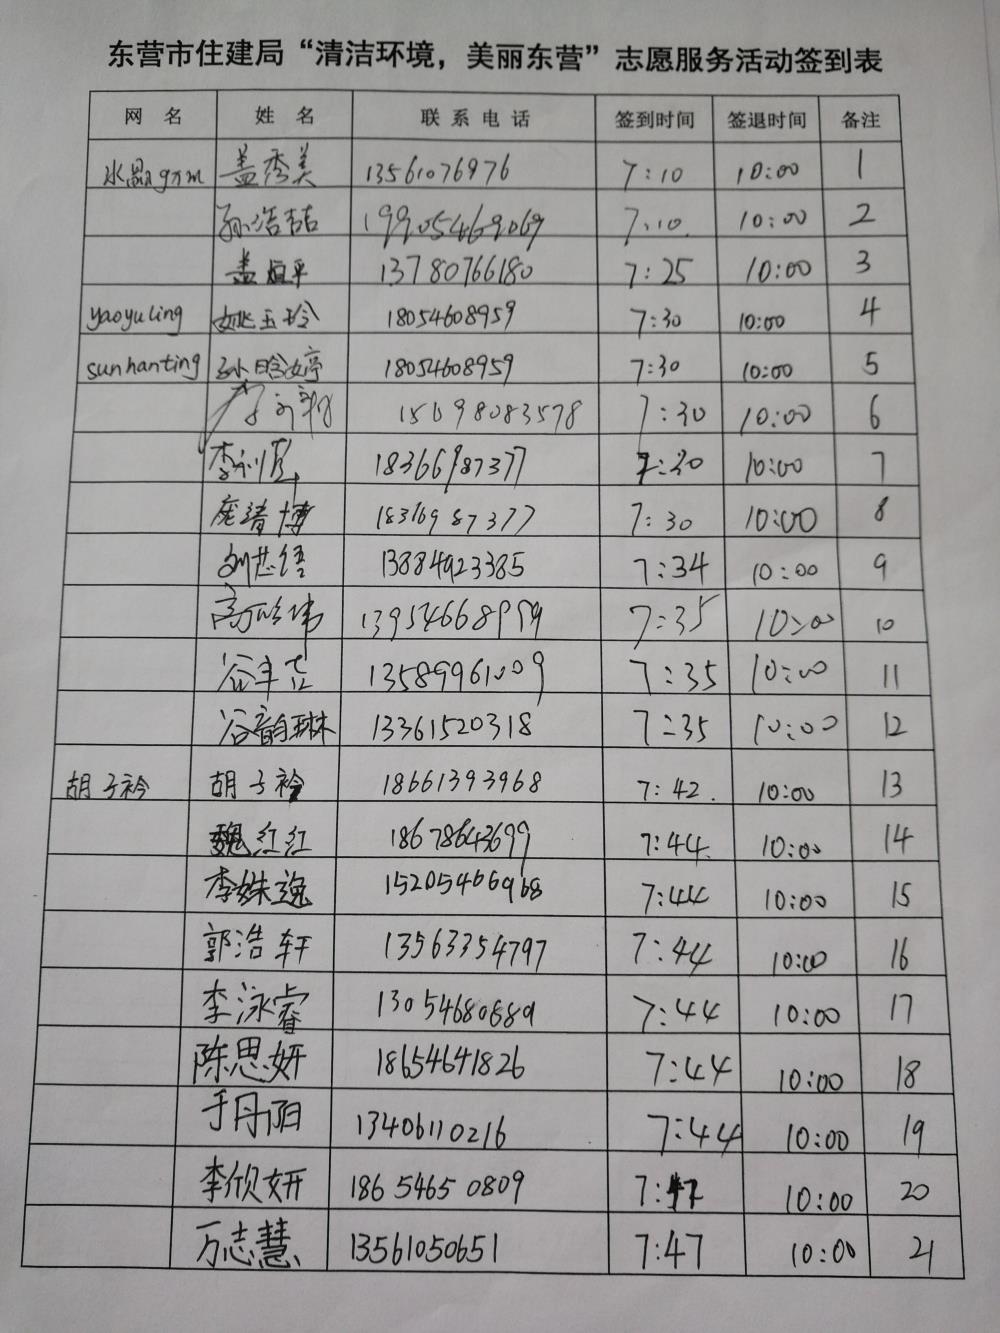 东营市住建局“清洁环境，美丽东营”志愿服务活动签到表
网 名 姓 名 联 系 电 话 签到时间 签退时间 备注
水晶gxm 盖秀美 13561076976 7:10 10:00 1
孙浩喆 19905469069 7:10 10:00 2
盖恒平 13780766180 7:25 10:00 3
yaoyuling 姚玉玲 18054608959 7:30 10:00 4
sunhanting 孙晗婷 18054608959 7:30 10:00 5
15698083578 7:30 10:00 6
18366987377 7:30 10:00 7
庞靖博 18366987377 7:30 10:00 8
刘芯语 13884923385 7:34 10:00 9
13954668999 7:35 10:00 10
谷丰吉 13589961009 7:35 10:00 11
谷韵琳 13361520318 7:35 10:00 12
胡子衿 胡子衿 18661393968 7:42. 10:00 13
魏红红 18678643699 7:44. 10:00 14
李姝逸 15205466968 7:44 10:00 15
郭浩轩 13563354797 7:44 10:00 16
李泳睿 13054680689 7:44 10:00 17
陈思妍 18654641826 7:44 10:00 18
于丹阳 13406110216 7:44 10:00 19
李欣妍 18654650809 7:47 10:00 20
万志慧 13561050651 7:47 10:00 21